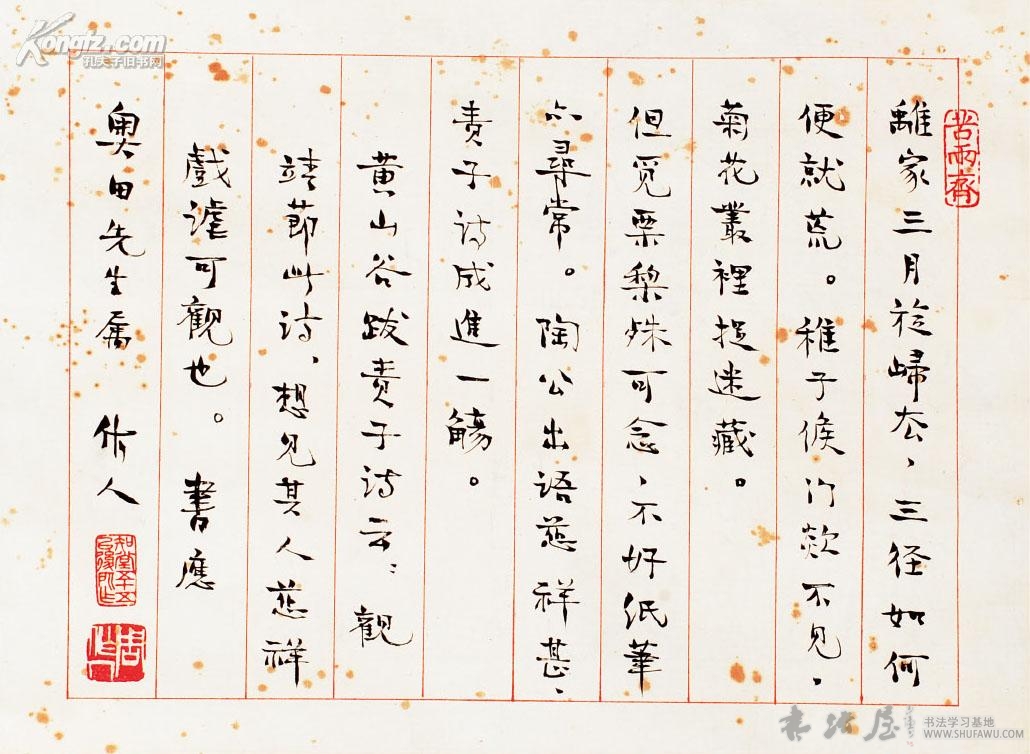 離家三月旋歸去，三径如何
便就荒。稚子候门歘不见，
菊花叢裡捉迷藏。
但觅栗梨殊可念，不好纸笔
亦尋常。陶公出语慈祥甚，
责子诗成進一觴。
黄山谷跋责子诗云：觀
靖節此诗，想见其人慈祥
戲谑可觀也。書應
奥田先生属 作人
苦雨斋
Kongfz.com
孔夫子旧书网
书法屋
书法学习基地
WWW.SHUFAWU.COM